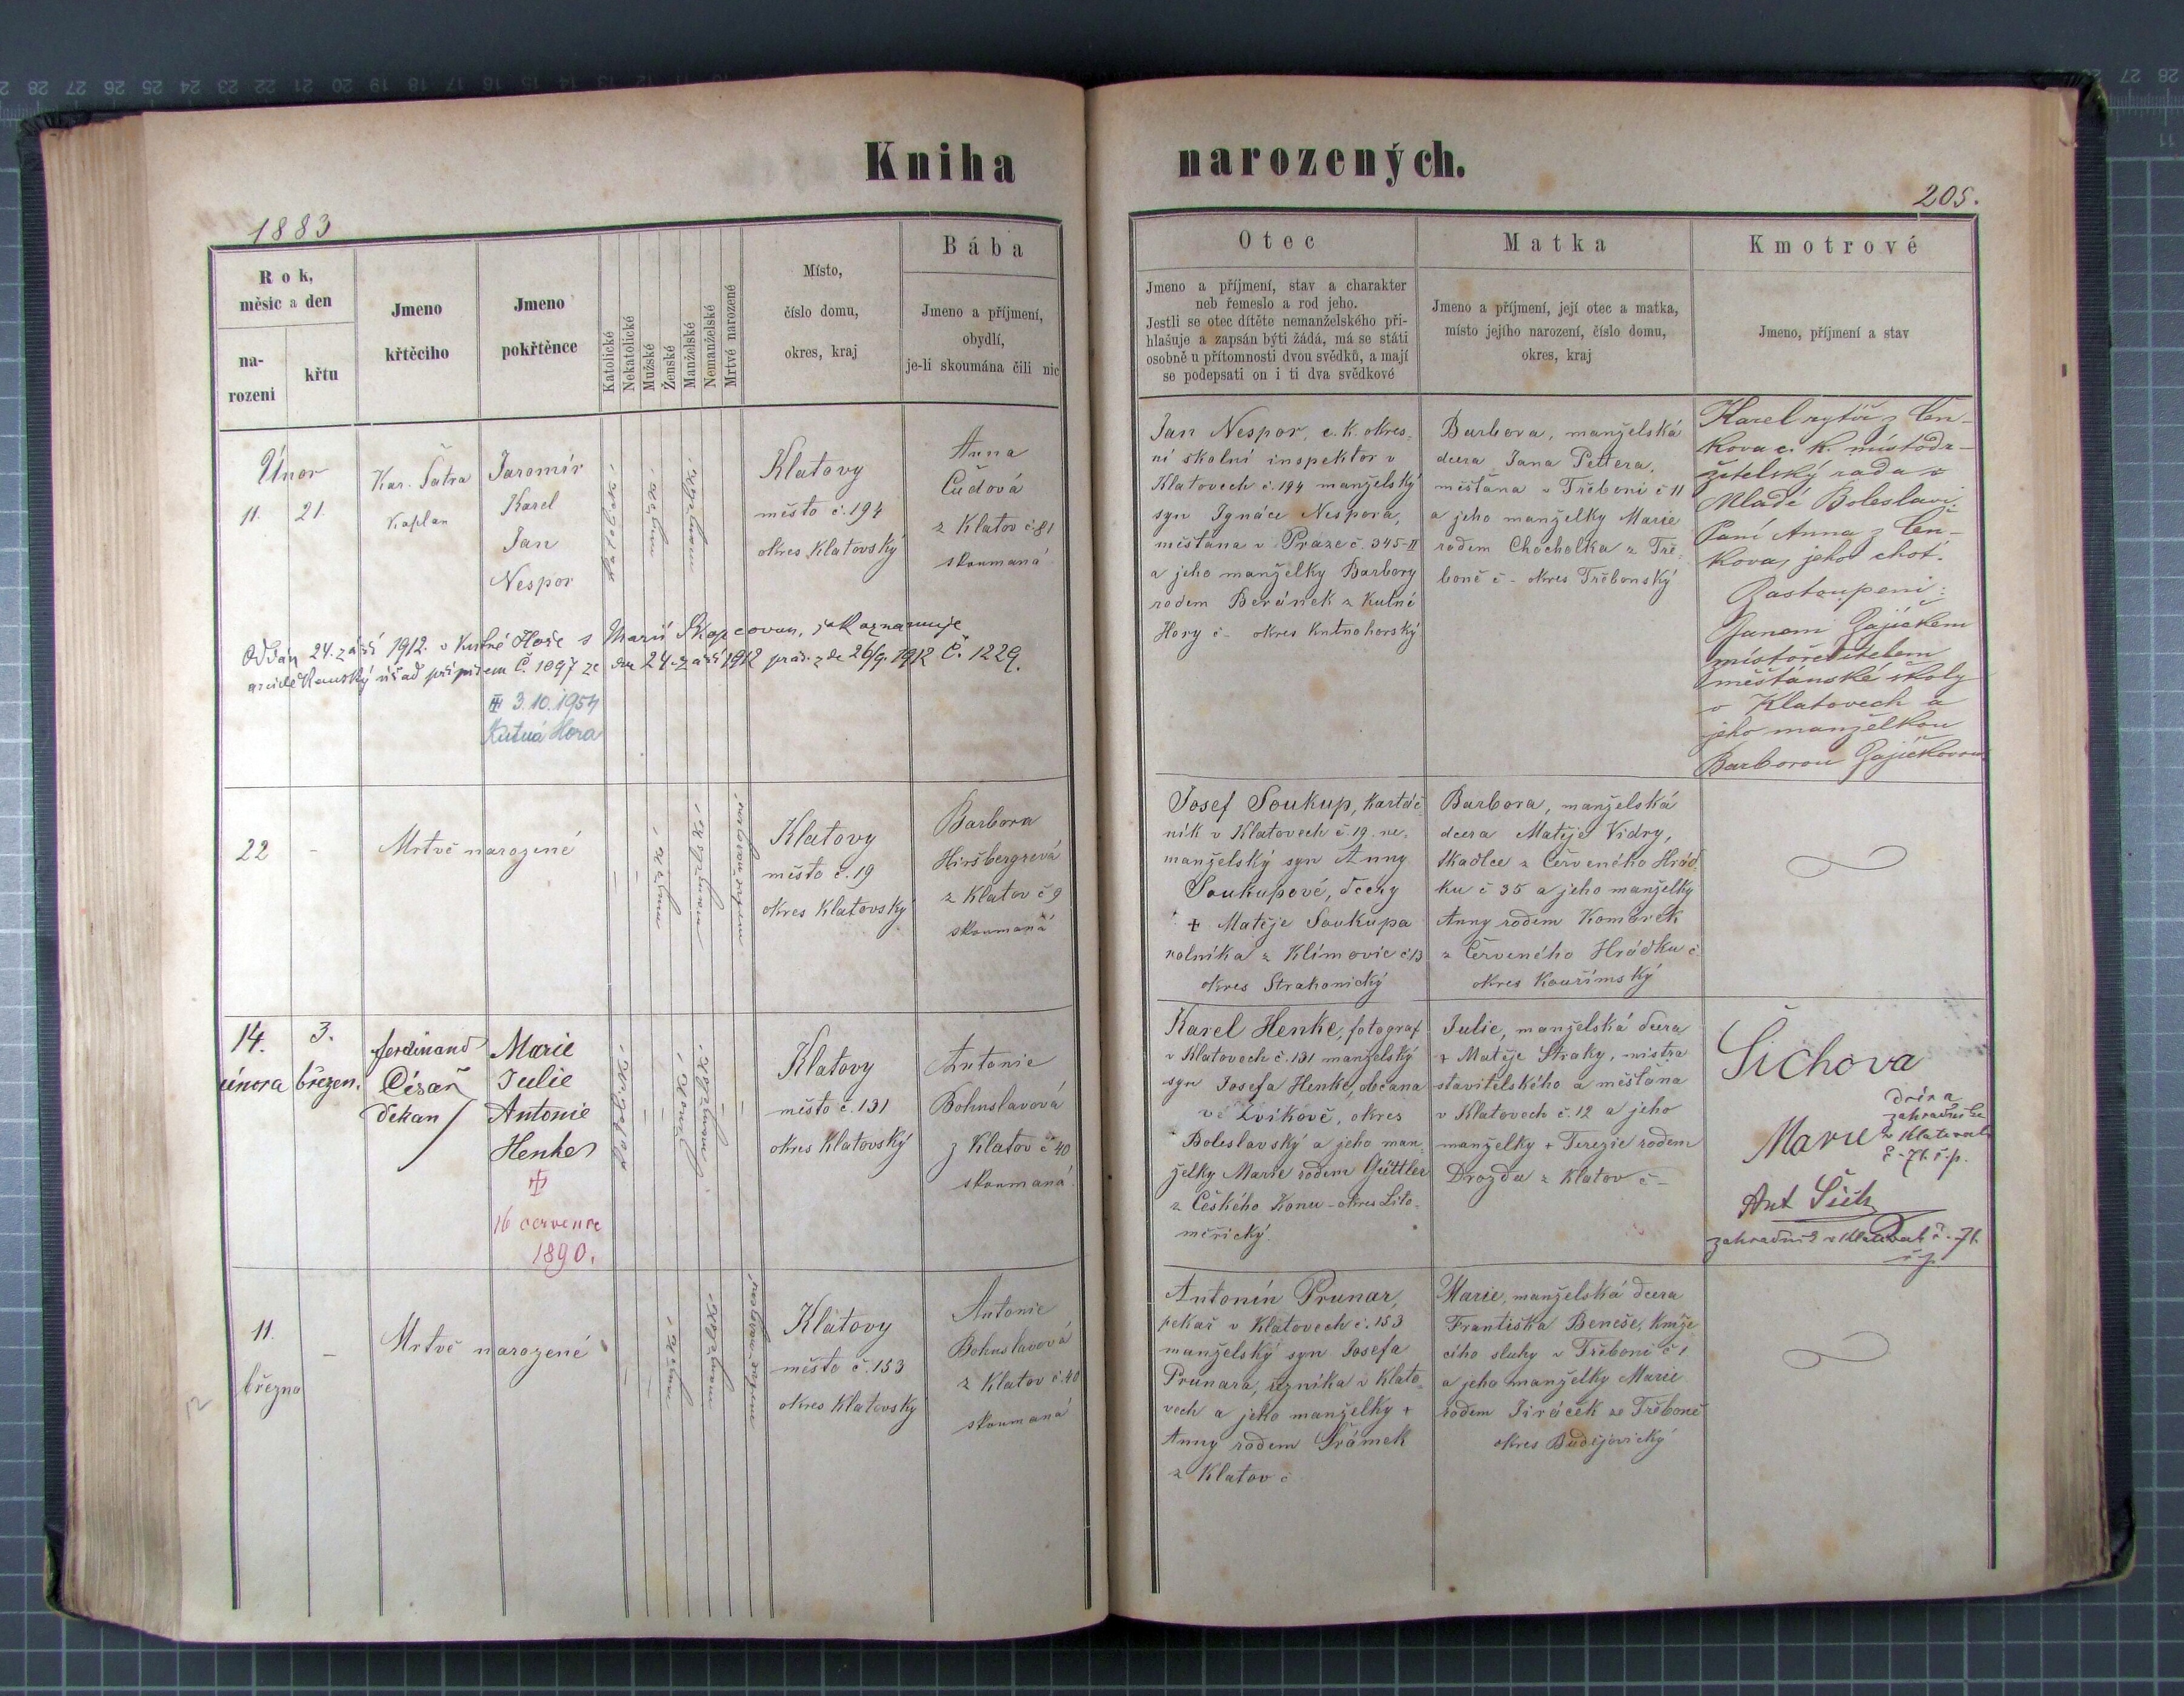 Kniha narozených.
1883
205.
Rok,
měsíc a den
na-
rozeni
křtu
Jmeno
křtěciho
Jmeno
pokřtěnce
Katolické
Nekatolické
Mužské
Ženské
Manželské
Nemanželské
Mrtvé narozené
Místo,
číslo domu,
okres, kraj
Bába
Jmeno a příjmení,
obydlí,
je-li skoumána čili nic
Otec
Jmeno a příjmení, stav a charakter
neb řemeslo a rod jeho.
Jestli se otec dítěte nemanželského při-
hlašuje a zapsán býti žádá, má se státi
osobně u přítomnosti dvou svědků, a mají
se podepsati on i ti dva svědkové
Matka
Jmeno a příjmení, její otec a matka,
místo jejího narození, číslo domu,
okres, kraj
Kmotrové
Jmeno, příjmení a stav
Únor
11. 21.
Kar. Šatra
Kaplan
Jaromír
Karel
Jan
Nespor
Klatovy
město č. 194
okres Klatovský
Anna
Čudová
z Klatov č. 81
skoumaná
Jan Nespor, c. k. okres-
ní školní inspektor v
Klatovech č. 194 manželský
syn Ignáce Nespora,
měšťana v Praze č. 345-II
a jeho manželky Barbory
rodem Beránek z Kutné
Hory č - okres Kutnohorský
Barbora, manželská
dcera Jana Pettera,
měšťana v Třeboni č 11
a jeho manželky Marie
rodem Chocholka z Tře-
boně č - okres Třeboňský
Karel rytíř z Čen-
kova c. k. místodr-
žitelský rada v
Mladé Boleslavi.
Paní Anna z Čen-
kova, jeho choť.
Zastoupeni:
Janem Zajíčkem
místoředitelem
měšťanské školy
v Klatovech a
jeho manželkou
Barborou Zajíčkovou
Oddán 24. září 1912. v Kutné Hoře s Marií Skopcovou, jak oznamuje
arciděkanský úřad přípisem Č. 1097 ze dne 24. září 1912 præs. zde 26/9. 1912 Č. 1229.
3. 10. 1954
Kutná Hora
22 -
Mrtvě narozené
Klatovy
město č. 19
okres Klatovský
Barbora
Hiršbergrová
z Klatov č 9
skoumaná
Josef Soukup, kartáč-
ník v Klatovech č. 19. ne-
manželský syn Anny
Soukupové, dcery
+ Matěje Soukupa
rolníka z Klimovic č 13
okres Strakonický
Barbora, manželská
dcera Matěje Vidry,
tkadlce z Červeného Hrád-
ku č 35 a jeho manželky
Anny rodem Komárek
z Červeného Hrádku č
okres Kouřimský
14. 3.
února březen.
Ferdinand
Císař
děkan
Marie
Julie
Antonie
Henke
16 července
1890.
Klatovy
město č. 131
okres Klatovský
Antonie
Bohuslavová
z Klatov č 40
skoumaná
Karel Henke, fotograf
v Klatovech č. 131 manželský
syn Josefa Henke, občana
ve Zvíkově, okres
Boleslavský a jeho man-
želky Marie rodem Güttler
z Českého - okres Lito-
měřický.
Julie, manželská dcera
+ Matěje Straky, mistra
stavitelského a měšťana
v Klatovech č. 12 a jeho
manželky + Terezie rodem
Drozda z Klatov č -
Šichova
Marie
zahradníka
v Klatovech
č. 71. č. p.
Ant Šich
zahradník v Klatovech č. 71.
č. p.
11. -
března
Mrtvě narozené
Klatovy
město č. 153
okres Klatovský
Antonie
Bohuslavová
z Klatov č. 40
skoumaná
Antonín Prunar,
pekař v Klatovech č. 153
manželský syn Josefa
Prunara, řezníka v Klato-
vech a jeho manželky +
Anny rodem Šrámek
z Klatov č
Marie, manželská dcera
Františka Beneše, kníže-
cího sluhy v Třeboni č 1
a jeho manželky Marie
rodem Jiráček ze Třeboně
okres Budějovický
12